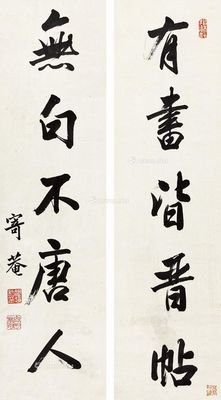 有書皆晋帖
無句不唐人
寄菴